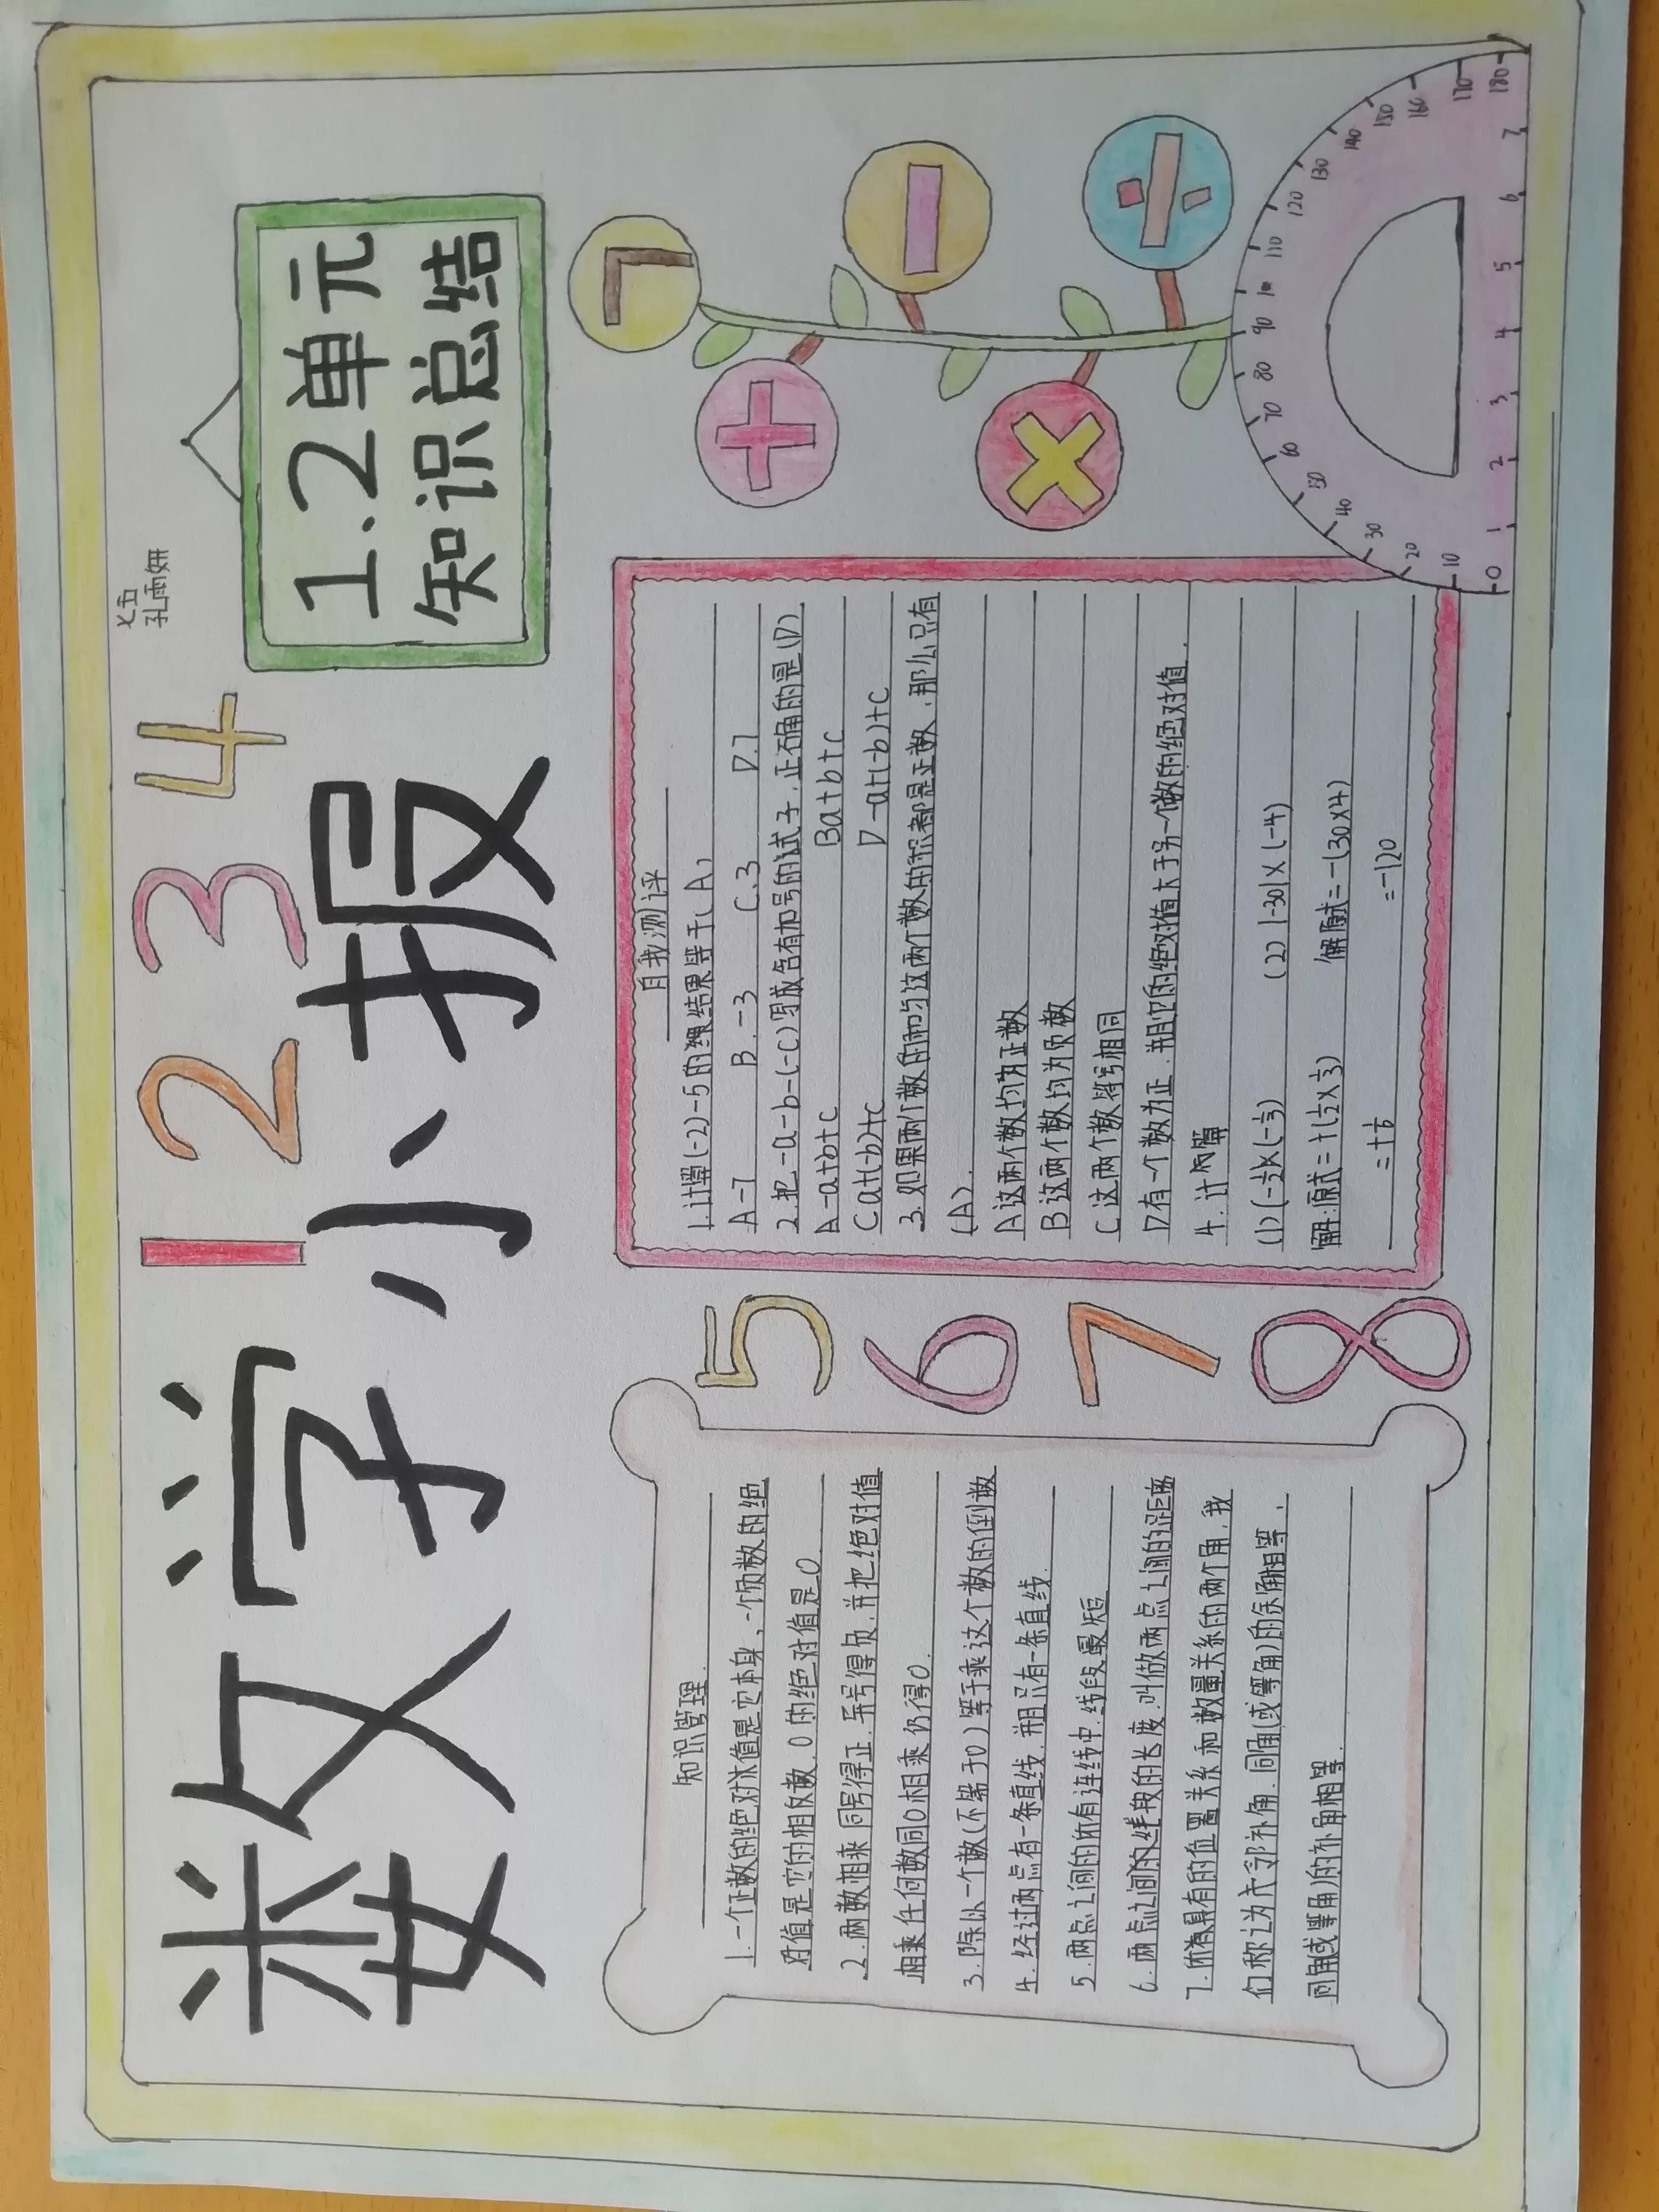 数学小报
1 2 3 4
七五
孔雨妍
1.2单元
知识总结
知识管理.
1.一个正数的绝对值是它本身,一个负数的绝
对值是它的相反数,0的绝对值是0
2.两数相乘同号得正.异号得负,并把绝对值
相乘任何数同0相乘仍得0.
3.除以一个数(不等于0)等于乘这个数的倒数
4.经过两点有一条直线,并且只有一条直线.
5.两点之间的所有连线中,线段最短
6.两点之间的线段的长度,叫做两点之间的距离
7.
们称让为
同角(或等角)的余角相等.
同角(或等角)的补角相等.
5
6
7
8
自我测评
1.计算(-2)-5的结果等于(A)
A-7 B.-3 C.3 D.7
2.把-a-b-(-c)写成含有加号的式子,正确的是(D).
A-a+b+c Ba+b+c
Ca+(-b)+c D-a+(-b)+c
3.如果两个数的和与这两个数的积都是正数,那么只有
(A).
A这两个数均为正数
B这两个数均为负数
C这两个数符号相同
D有一个数为正.并且它的绝对值大于另一个数的绝对值.
4.计算
(1)(-1/2)×(-1/3) (2)|-30|×(-4)
解:原式=+(1/2×1/3) 解原式=-(30×4)
=+1/6 =-120
+
-
×
÷
0 10 20 30 40 50 60 70 80 90 100 110 120 130 140 150 160 170 180
0 1 2 3 4 5 6 7